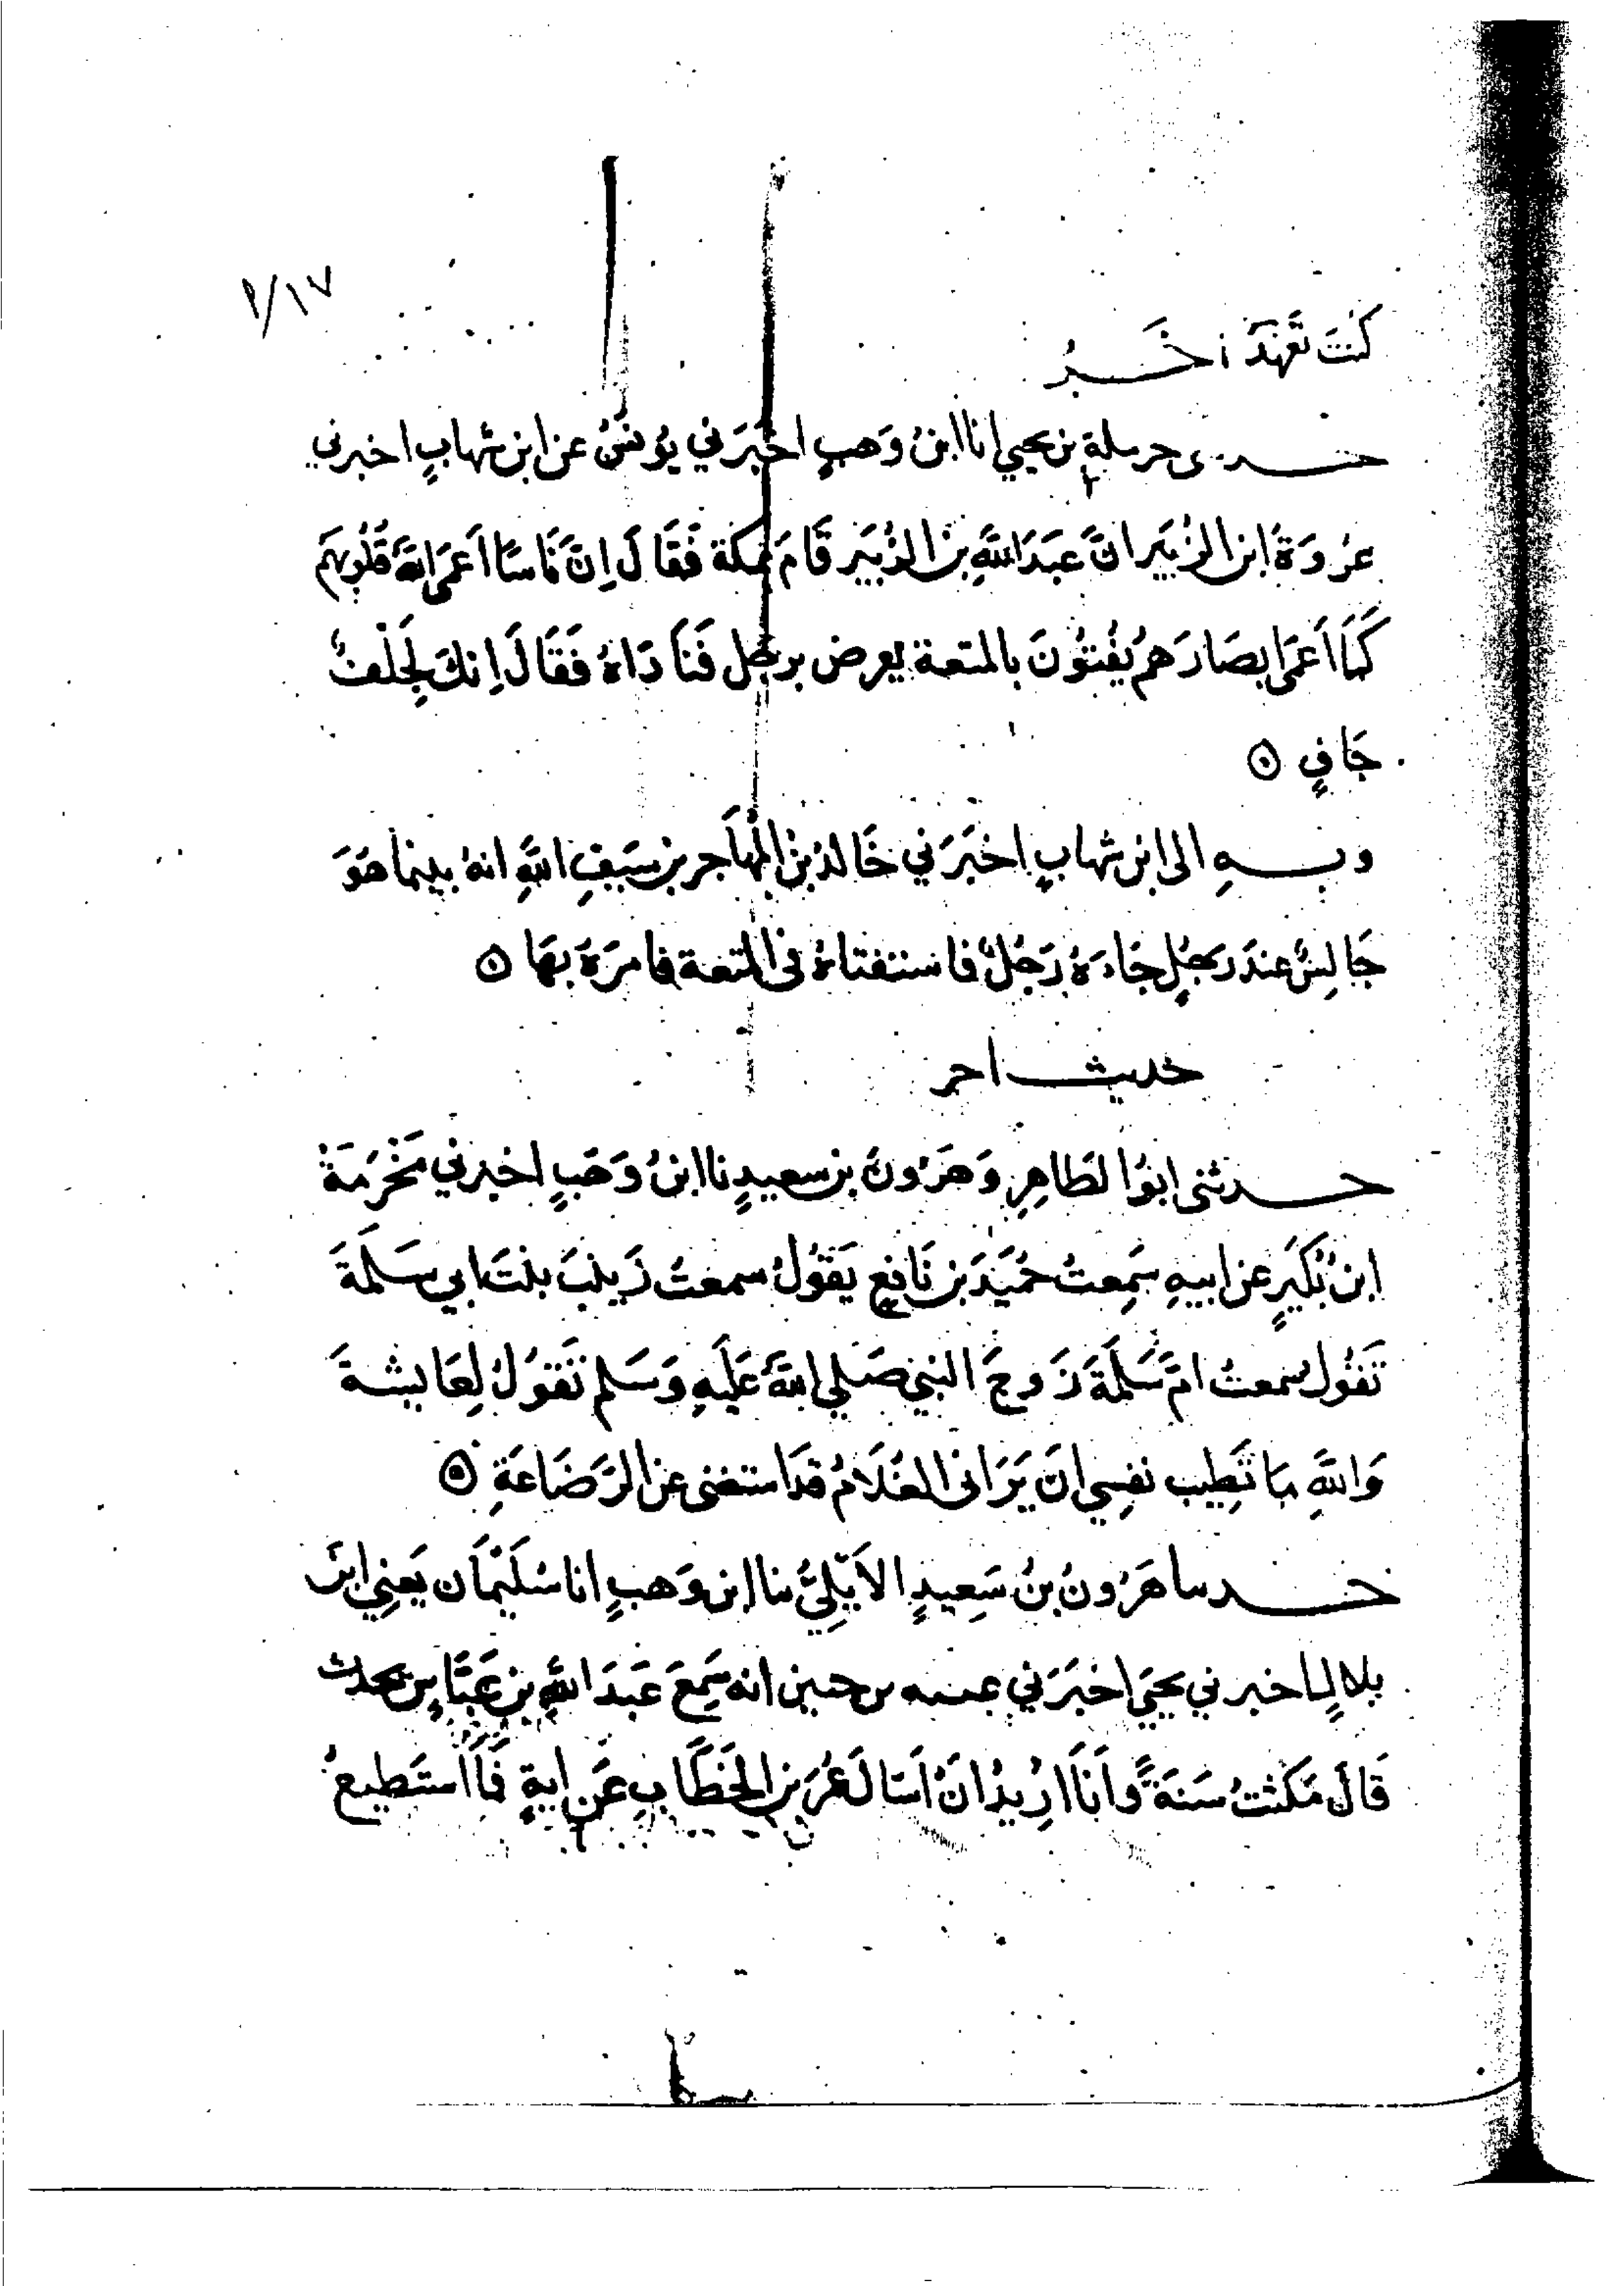 ١٧/١
كنتَ تَعْهَدُ آخَر
حدثني حرملة بن يحيي انا ابنُ وَهبٍ اخبَرَني يُونسُ عن ابن شهابٍ اخبرني
عُروَةُ ابن الزُبَير انَّ عَبدَ اللَّهِ بن الزُبَيرِ قَامَ بمكة فَقَالَ اِنَّ نَاسًا اَعمَى اللهُ قُلُوبهَم
كَمَا اَعمَى ابصَارَهم يُفتُونَ بالمتعة يعرض برجُل فَنَادَاهُ فَقَالَ اِنكَ لَجِلْفٌ
جَافٍ
وبــهِ الى ابن شهابٍ اخبَرَني خَالدُ بنُ المُهَاجر بن سَيفِ اللَّهِ انهُ بينما هُوَ
جَالِسٌ عندَ رَجُلٍ جَاءَهُ رَجُلٌ فاستفتاهُ في المتعة فامرَهُ بهَا
حديث اخر
حدثنى ابُو الطَاهِرِ وَهَرُونُ بن سعيدٍ نا ابنُ وَهَبٍ اخبرني مَخْرَمَةُ
ابن بُكَيرٍ عن ابيهِ سَمِعتُ حُمَيَد بن نَافِعٍ يَقُولُ سمعتُ زَينبَ بنتَ ابي سَلَمَةَ
تَقُول سمعتُ امَّ سَلَمَةَ زَوجَ النبي صَلي اللهُ عَلَيهِ وَسَلم تَقُولُ لِعَايشةَ
وَاللَّهِ مَا تَطِيب نفسِي اَن يَرَانى الغُلَامُ قد استغنى عن الرَّضَاعَةِ
حدثنا هَرُونُ بنُ سَعِيدٍ الاَيْلِيُّ نا ابن وَهبٍ انا سُلَيْمَان يَعنِي ابنَ
بلالٍ اخبرني يحيَى اخبَرَني عبيد بن حنين انه سَمِعَ عَبدَ اللَّهِ بن عَبَّاسٍ يحدث
قَالَ مَكَثتُ سَنَةً وانَا اُرِيدُ انْ اَسَالَ عُمَرَ بن الخَطَّابِ عَن ايةٍ فَمَا استَطِيعُ